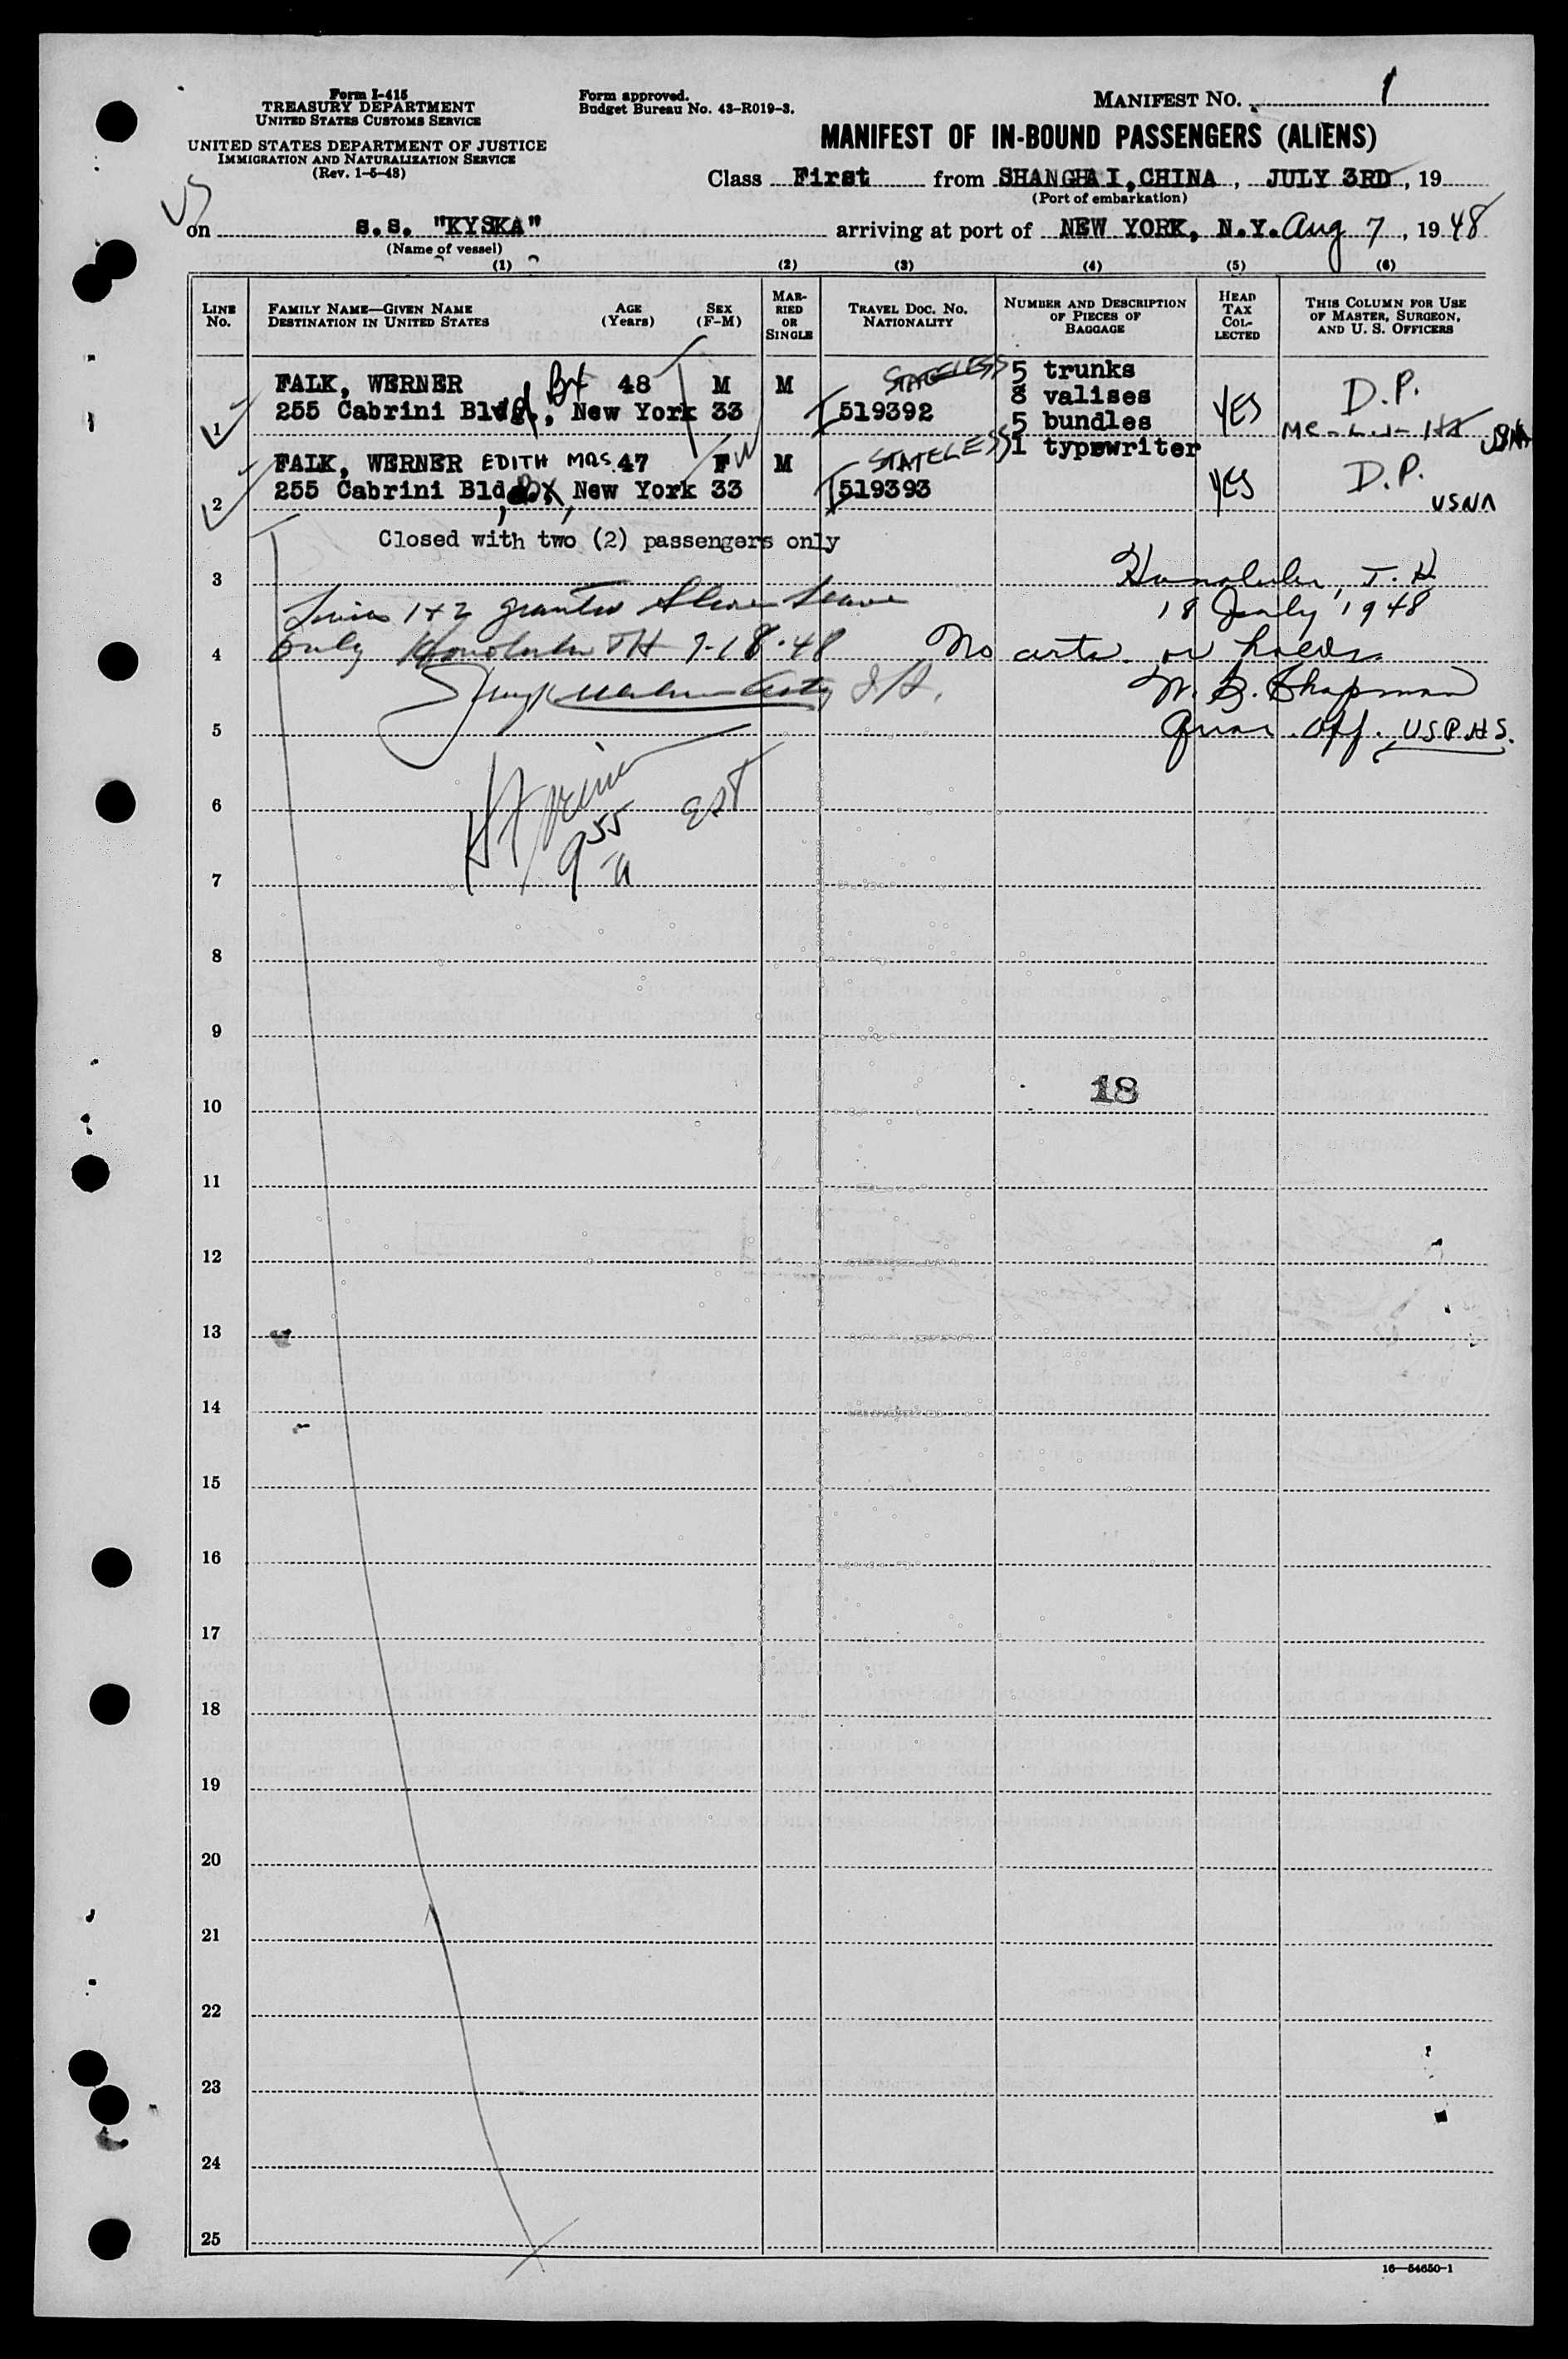 Form I-415
TREASURY DEPARTMENT
UNITED STATES CUSTOMS SERVICE
UNITED STATES DEPARTMENT OF JUSTICE
IMMIGRATION AND NATURALIZATION SERVICE
(Rev. 1-5-48)
Form approved.
Budget Bureau No. 43-R019-3.
MANIFEST NO. 1
MANIFEST OF IN-BOUND PASSENGERS (ALIENS)
Class First from SHANGHAI, CHINA, JULY 3RD, 19
(Port of embarkation)
on s.s. "KYSKA" arriving at port of NEW YORK, N.Y. Aug 7, 1948
(Name of vessel)
(1) (2) (3) (4) (5) (6)
LINE NO.
FAMILY NAME—GIVEN NAME
DESTINATION IN UNITED STATES
AGE (Years)
SEX (F-M)
MARRIED OR SINGLE
TRAVEL DOC. NO.
NATIONALITY
NUMBER AND DESCRIPTION
OF PIECES OF
BAGGAGE
HEAD TAX COLLECTED
THIS COLUMN FOR USE
OF MASTER, SURGEON,
AND U. S. OFFICERS
1 FALK, WERNER 48 M M STATELESS 5 trunks YES D.P.
255 Cabrini Blvd., New York 33 519392 8 valises
5 bundles
1 typewriter
2 FALK, WERNER EDITH MRS. 47 F W M STATELESS YES D.P.
255 Cabrini Bld, New York 33 519393 USNA
Closed with two (2) passengers only
3
Lines 1+2 granted Shore Leave
only Honolulu TH 7-18-48
Honolulu, T.H.
18 July 1948
4
No certs. or holds
W. B. Chapman
Quar. Off., USPHS.
5
6
955 EST
7
8
9
10
18
11
12
13
14
15
16
17
18
19
20
21
22
23
24
25
16—54650-1